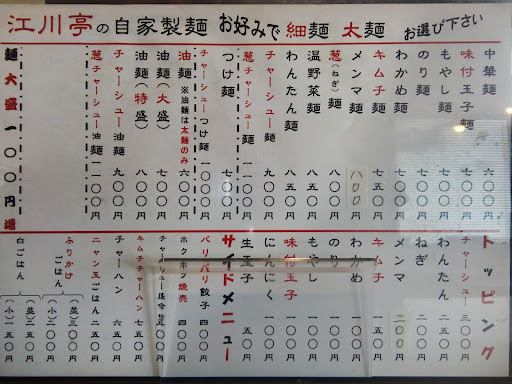 江川亭の自家製麺 お好みで 細麺 太麺 お選び下さい
中華麺 六〇〇円
味付玉子麺 七〇〇円
もやし麺 七〇〇円
のり麺 七〇〇円
わかめ麺 七〇〇円
キムチ麺 七五〇円
メンマ麺 八〇〇円
葱(ねぎ)麺 八〇〇円
温野菜麺 八五〇円
わんたん麺 八五〇円
チャーシュー麺 九〇〇円
葱チャーシュー麺 一一〇〇円
つけ麺 七〇〇円
チャーシューつけ麺
油麺 ※油麺は太麺のみ 六〇〇円
油麺(大盛) 七〇〇円
油麺(特盛)
チャーシュー油麺 九〇〇円
葱チャーシュー油麺 一一〇〇円
麺大盛一〇〇円増
トッピング
チャーシュー 三〇〇円
わんたん
ねぎ 二〇〇円
メンマ 二〇〇円
キムチ 一五〇円
わかめ 一〇〇円
のり 一〇〇円
もやし 一〇〇円
味付玉子 一〇〇円
にんにく
生玉子 五〇円
サイドメニュー
パリパリ餃子 四〇〇円
ホクホク焼売 四〇〇円
チャーシュー
キムチチャーハン 七五〇円
チャーハン 六五〇円
ニャン玉ごはん 二五〇円
ふりかけごはん (並)三〇〇円
(小)二五〇円
白ごはん (並)二〇〇円
(小)一五〇円